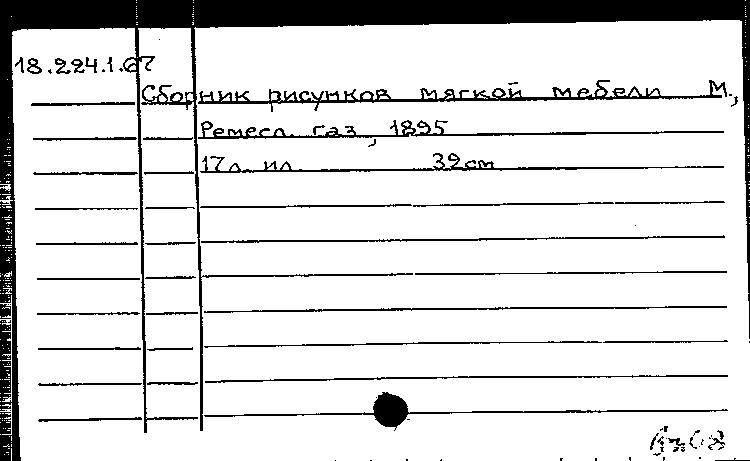 18.224.1.67
Сборник рисунков мягкой мебели М.,
Ремесл. газ, 1895
17л. ил. 39см